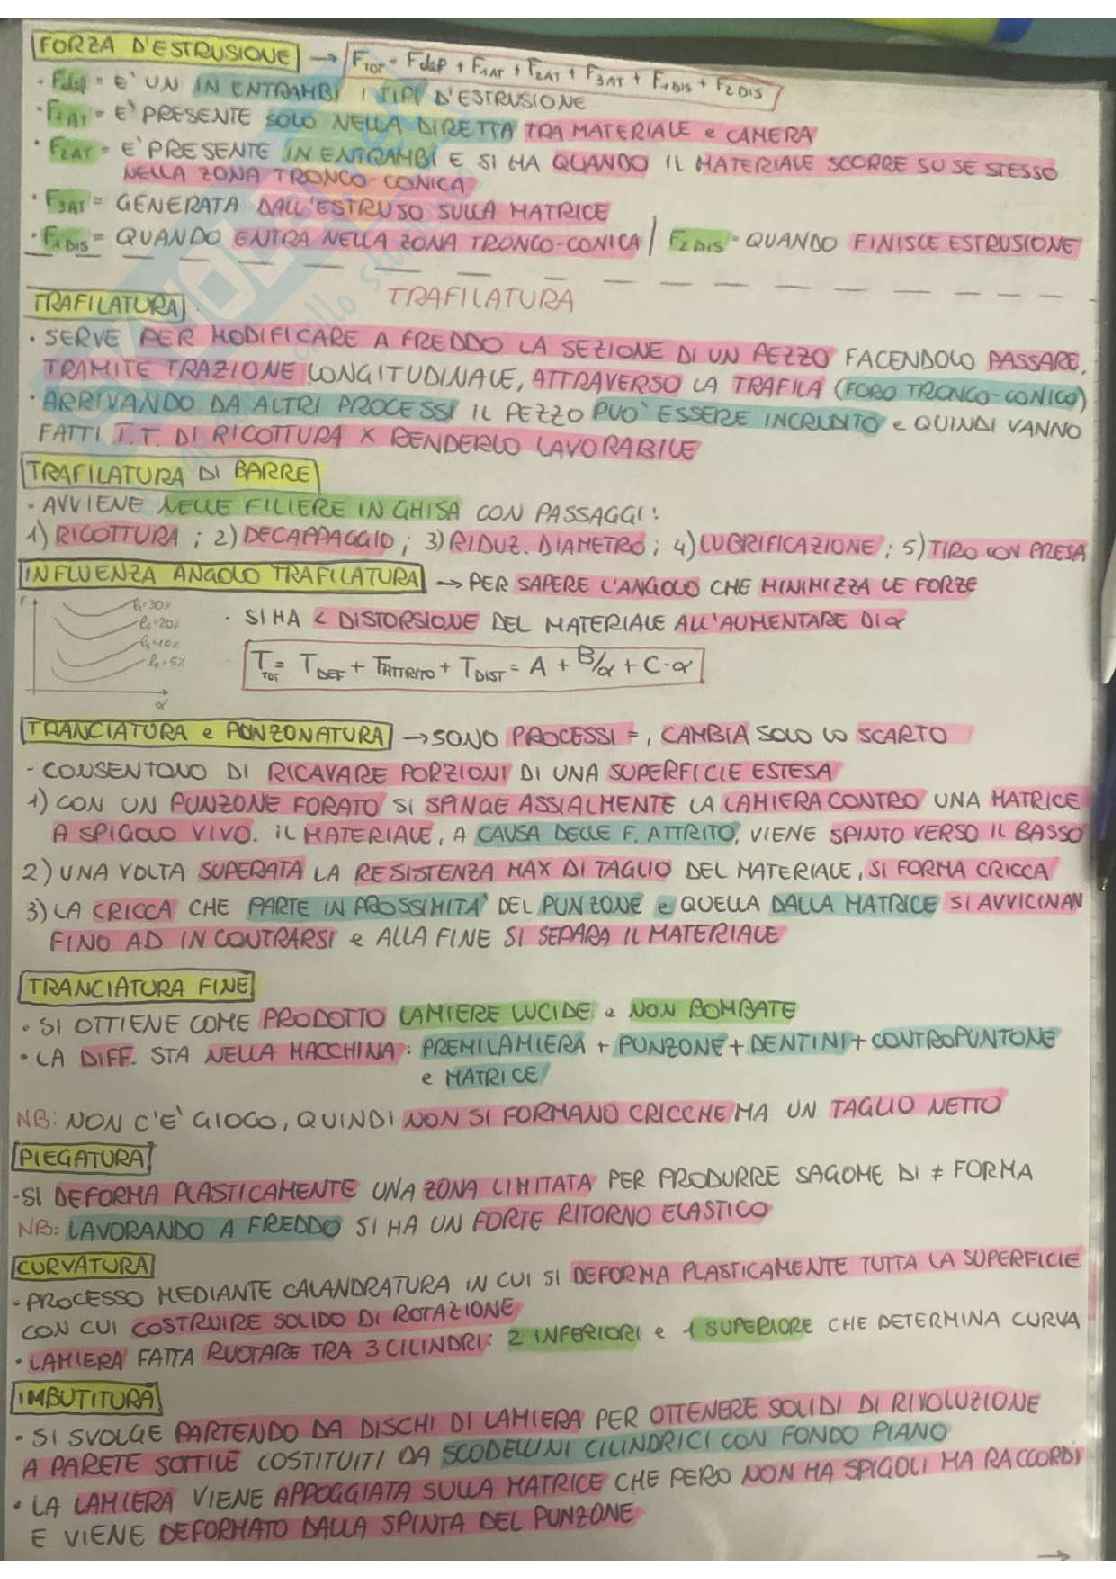 FORZA D'ESTRUSIONE → F_TOT = Fdef + F1AT + F2AT + F3AT + F1DIS + F2DIS
· Fdef = E' UN IN ENTRAMBI I TIPI D'ESTRUSIONE
· F1AT = E' PRESENTE SOLO NELLA DIRETTA TRA MATERIALE e CAMERA
· F2AT = E' PRESENTE IN ENTRAMBI E SI HA QUANDO IL MATERIALE SCORRE SU SE STESSO
NELLA ZONA TRONCO-CONICA
· F3AT = GENERATA DALL'ESTRUSO SULLA MATRICE
· F1DIS = QUANDO ENTRA NELLA ZONA TRONCO-CONICA / F2DIS = QUANDO FINISCE ESTRUSIONE
TRAFILATURA
TRAFILATURA
· SERVE PER MODIFICARE A FREDDO LA SEZIONE DI UN PEZZO FACENDOLO PASSARE,
TRAMITE TRAZIONE LONGITUDINALE, ATTRAVERSO LA TRAFILA (FORO TRONCO-CONICO)
· ARRIVANDO DA ALTRI PROCESSI IL PEZZO PUO' ESSERE INCRUDITO e QUINDI VANNO
FATTI T.T. DI RICOTTURA X RENDERLO LAVORABILE
TRAFILATURA DI BARRE
· AVVIENE NELLE FILIERE IN GHISA CON PASSAGGI:
1) RICOTTURA; 2) DECAPPAGGIO; 3) RIDUZ. DIAMETRO; 4) LUBRIFICAZIONE; 5) TIRO CON PRESA
INFLUENZA ANGOLO TRAFILATURA → PER SAPERE L'ANGOLO CHE MINIMIZZA LE FORZE
· SI HA < DISTORSIONE DEL MATERIALE ALL'AUMENTARE DI α
T_TOT = T_DEF + T_ATTRITO + T_DIST = A + B/α + C·α
α
TRANCIATURA e PUNZONATURA → SONO PROCESSI =, CAMBIA SOLO LO SCARTO
- CONSENTONO DI RICAVARE PORZIONI DI UNA SUPERFICIE ESTESA
1) CON UN PUNZONE FORATO SI SPINGE ASSIALMENTE LA LAMIERA CONTRO UNA MATRICE
A SPIGOLO VIVO. IL MATERIALE, A CAUSA DELLE F. ATTRITO, VIENE SPINTO VERSO IL BASSO
2) UNA VOLTA SUPERATA LA RESISTENZA MAX DI TAGLIO DEL MATERIALE, SI FORMA CRICCA
3) LA CRICCA CHE PARTE IN PROSSIMITA' DEL PUNZONE e QUELLA DALLA MATRICE SI AVVICINAN
FINO AD INCONTRARSI e ALLA FINE SI SEPARA IL MATERIALE
TRANCIATURA FINE
· SI OTTIENE COME PRODOTTO LAMIERE LUCIDE e NON BOMBATE
· LA DIFF. STA NELLA MACCHINA: PREMILAMIERA + PUNZONE + DENTINI + CONTROPUNTONE
e MATRICE
NB: NON C'E' GIOCO, QUINDI NON SI FORMANO CRICCHE MA UN TAGLIO NETTO
PIEGATURA
- SI DEFORMA PLASTICAMENTE UNA ZONA LIMITATA PER PRODURRE SAGOME DI ≠ FORMA
NB: LAVORANDO A FREDDO SI HA UN FORTE RITORNO ELASTICO
CURVATURA
- PROCESSO MEDIANTE CALANDRATURA IN CUI SI DEFORMA PLASTICAMENTE TUTTA LA SUPERFICIE
CON CUI COSTRUIRE SOLIDO DI ROTAZIONE
· LAMIERA FATTA RUOTARE TRA 3 CILINDRI: 2 INFERIORI e 1 SUPERIORE CHE DETERMINA CURVA
IMBUTITURA
· SI SVOLGE PARTENDO DA DISCHI DI LAMIERA PER OTTENERE SOLIDI DI RIVOLUZIONE
A PARETE SOTTILE COSTITUITI DA SCODELLINI CILINDRICI CON FONDO PIANO
· LA LAMIERA VIENE APPOGGIATA SULLA MATRICE CHE PERO NON HA SPIGOLI MA RACCORDI
E VIENE DEFORMATO DALLA SPINTA DEL PUNZONE
→